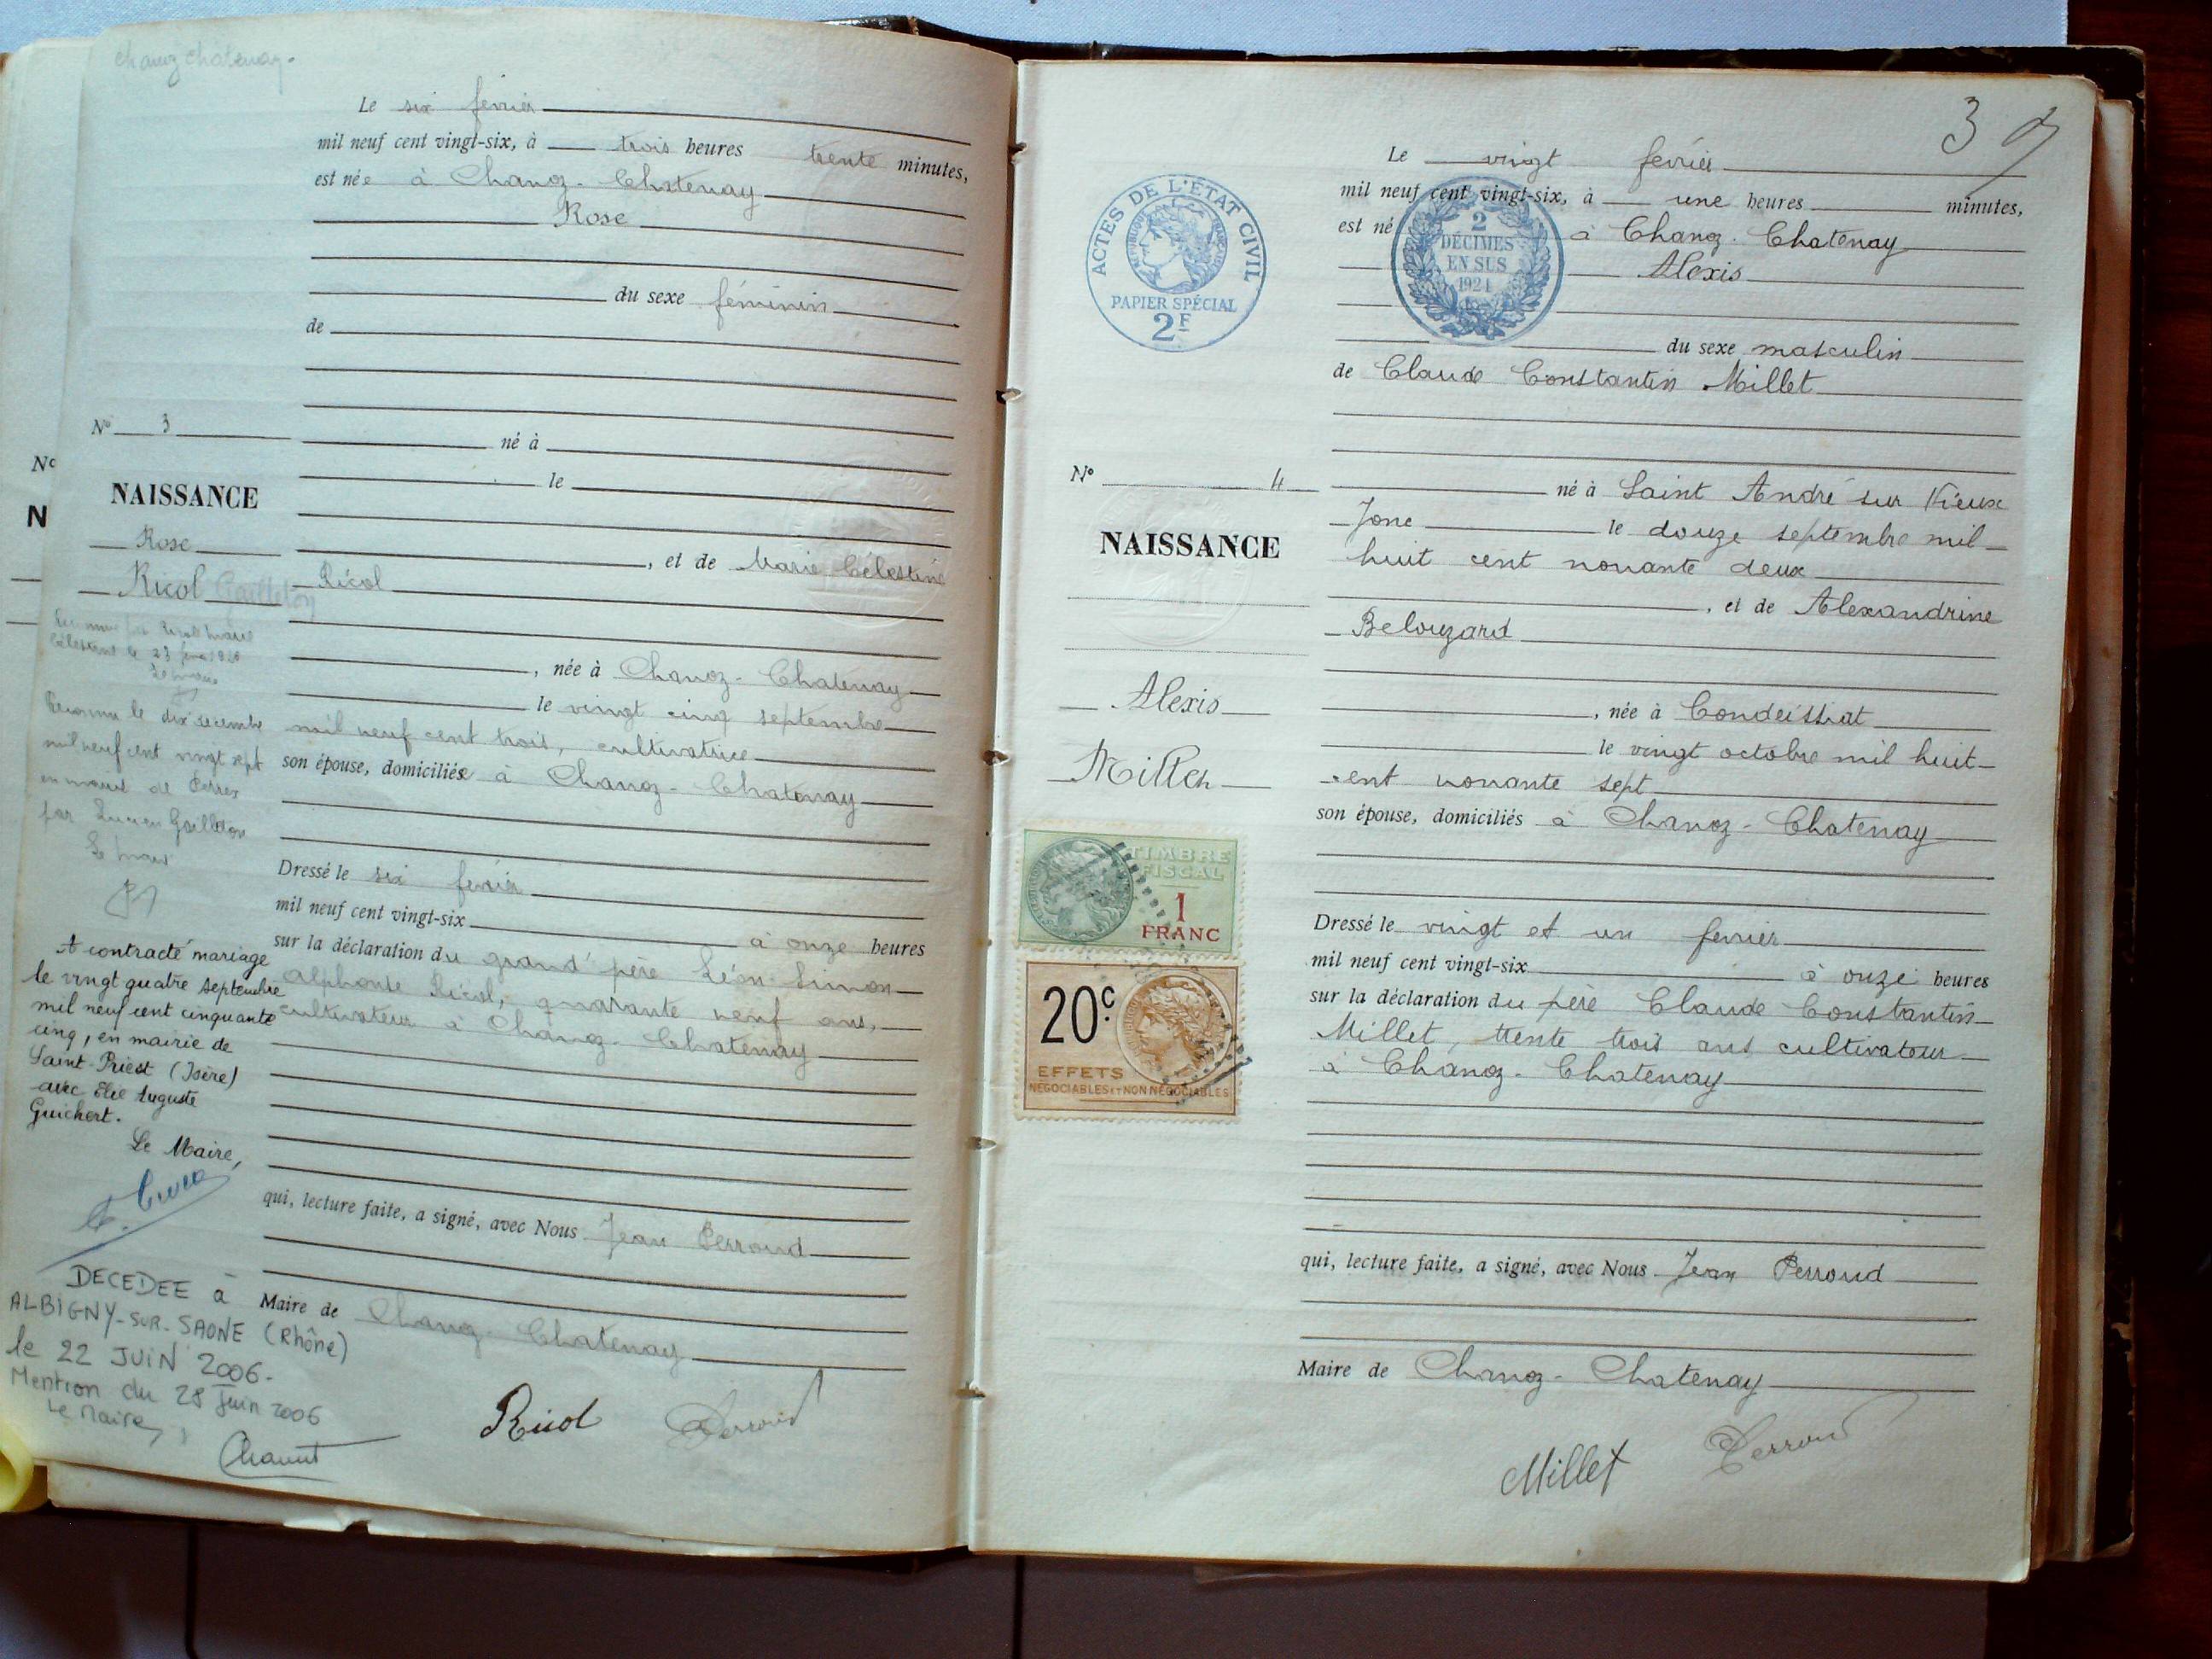 chanoz chatenay.
Le six février
mil neuf cent vingt-six, à trois heures trente minutes,
est née à Chanoz-Chatenay
Rose
du sexe féminin
de
N° 3
né à
N°
NAISSANCE
le
N
Rose
, et de Marie Célestine
Ricol Gailleton
Ricol
Célestine le 23
, née à Chanoz-Chatenay
le vingt cinq septembre
Reconnue le dix decembre
mil neuf cent trois, cultivatrice
mil neuf cent vingt sept
son épouse, domiciliée à Chanoz-Chatenay
en mairie de Perrex
par Lucien Gailleton
Le Maire
Dressé le six février
mil neuf cent vingt-six à onze heures
sur la déclaration du grand'père Léon Simon
Alphonse Ricol, quarante neuf ans,
cultivateur à Chanoz-Chatenay
A contracté mariage
le vingt quatre septembre
mil neuf cent cinquante
cinq, en mairie de
Saint-Priest (Isère)
avec Elie Auguste
Guichert.
Le Maire,
qui, lecture faite, a signé, avec Nous Jean Perroud
DECEDEE à
ALBIGNY-SUR-SAONE (Rhône)
le 22 JUIN 2006-
Mention du 28 Juin 2006
Le Maire,
Maire de Chanoz-Chatenay
Ricol Perroud
3
Le vingt février
mil neuf cent vingt-six, à une heures minutes,
est né à Chanoz-Chatenay
Alexis
ACTES DE L'ÉTAT CIVIL
RÉPUBLIQUE FRANÇAISE
PAPIER SPÉCIAL
2F
2
DÉCIMES
EN SUS
1924
du sexe masculin
de Claude Constantin Millet
N° 4
né à Saint André sur Vieux
Jonc le douze septembre mil
NAISSANCE
huit cent nonante deux
, et de Alexandrine
Belouzard
Alexis
, née à Condeissiat
le vingt octobre mil huit
Millet
cent nonante sept
son épouse, domiciliés à Chanoz-Chatenay
TIMBRE
FISCAL
1
FRANC
Dressé le vingt et un février
mil neuf cent vingt-six à onze heures
sur la déclaration du père Claude Constantin
Millet, trente trois ans cultivateur
à Chanoz-Chatenay
20c
EFFETS
NÉGOCIABLES ET NON NÉGOCIABLES
qui, lecture faite, a signé, avec Nous Jean Perroud
Maire de Chanoz-Chatenay
Millet Perroud